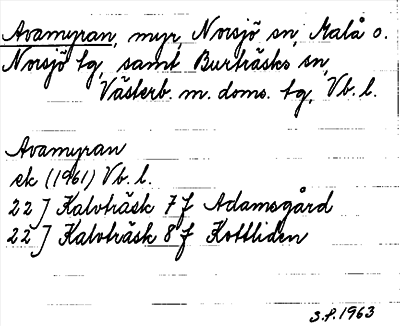 Avamyran, myr, Norsjö sn, Malå o.
Norsjö tg, samt Burträsks sn,
Västerb. m. doms. tg, Vb. l.
Avamyran
ek (1961) Vb. l.
22 J Kalvträsk 7 f Adamsgård
22 J Kalvträsk 8 f Kottliden
S.P. 1963